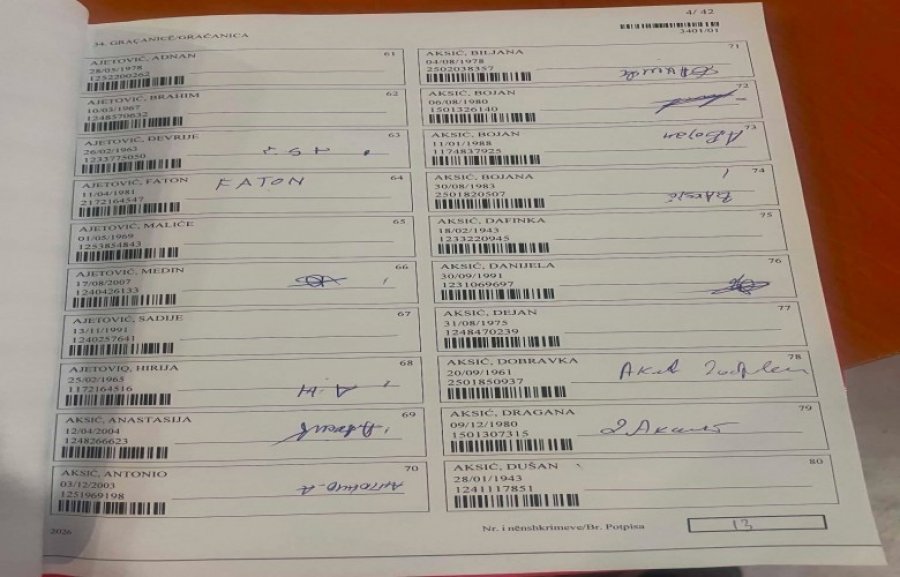 4/ 42
3401/01
34. GRAÇANICË/GRAČANICA
AJETOVIĆ, ADNAN 61
28/05/1978
1252200262
AJETOVIĆ, BRAHIM 62
10/03/1967
1248570632
AJETOVIĆ, DEVRIJE 63
26/02/1963
1233775050
AJETOVIĆ, FATON 64
FATON
11/04/1981
2172164547
AJETOVIĆ, MALIĆE 65
01/05/1969
1253854843
AJETOVIĆ, MEDIN 66
17/08/2007
1240426133
AJETOVIĆ, SADIJE 67
13/11/1991
1240257641
AJETOVIQ, HIRIJA 68
25/02/1965
1172164516
AKSIĆ, ANASTASIJA 69
12/04/2004
1248266623
AKSIĆ, ANTONIO 70
03/12/2003
1251969198
AKSIĆ, BILJANA 71
04/08/1978
2502038357
AKSIĆ, BOJAN 72
06/08/1980
1501326140
AKSIĆ, BOJAN 73
ABojan
11/01/1988
1174837925
AKSIĆ, BOJANA 74
30/08/1983
2501820507
AKSIĆ, DAFINKA 75
18/02/1943
1233220945
AKSIĆ, DANIJELA 76
30/09/1991
1231069697
AKSIĆ, DEJAN 77
31/08/1975
1248470239
AKSIĆ, DOBRAVKA 78
20/09/1961
2501850937
AKSIĆ, DRAGANA 79
09/12/1980
1501307315
AKSIĆ, DUŠAN 80
28/01/1943
1241117851
2026
Nr. i nënshkrimeve/Br. Potpisa 13